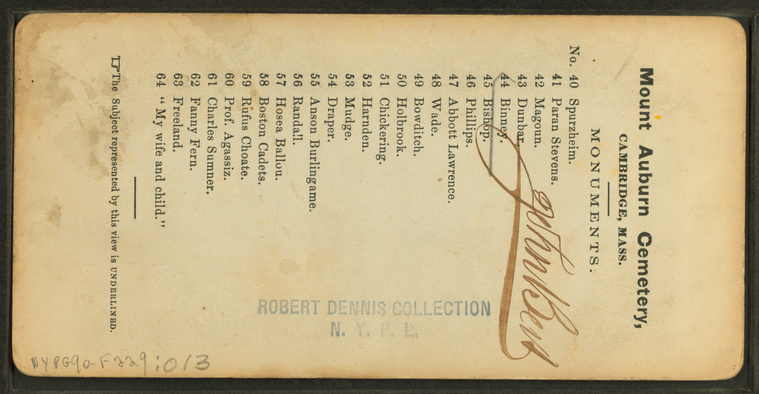 Mount Auburn Cemetery,
CAMBRIDGE, MASS.
MONUMENTS.
No. 40 Spurzheim.
41 Paran Stevens.
42 Magoun.
43 Dunbar.
44 Binney.
45 Bishop.
46 Phillips.
47 Abbott Lawrence.
48 Wade.
49 Bowditch.
50 Holbrook.
51 Chickering.
52 Harnden.
53 Mudge.
54 Draper.
55 Anson Burlingame.
56 Randall.
57 Hosea Ballou.
58 Boston Cadets.
59 Rufus Choate.
60 Prof. Agassiz.
61 Charles Sumner.
62 Fanny Fern.
63 Freeland.
64 “My wife and child.”
☞The Subject represented by this view is UNDERLINED.
John
ROBERT DENNIS COLLECTION
N. Y. P. L.
NYPG90-F229:013